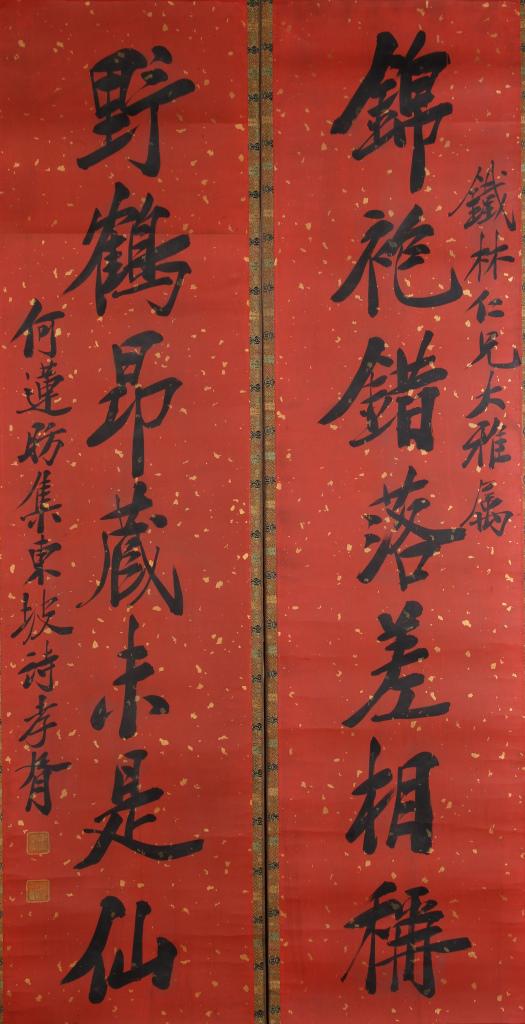 鐵林仁兄大雅属
錦袍錯落差相稱
野鶴昂蔵未是仙
何蓮舫集東坡詩孝胥